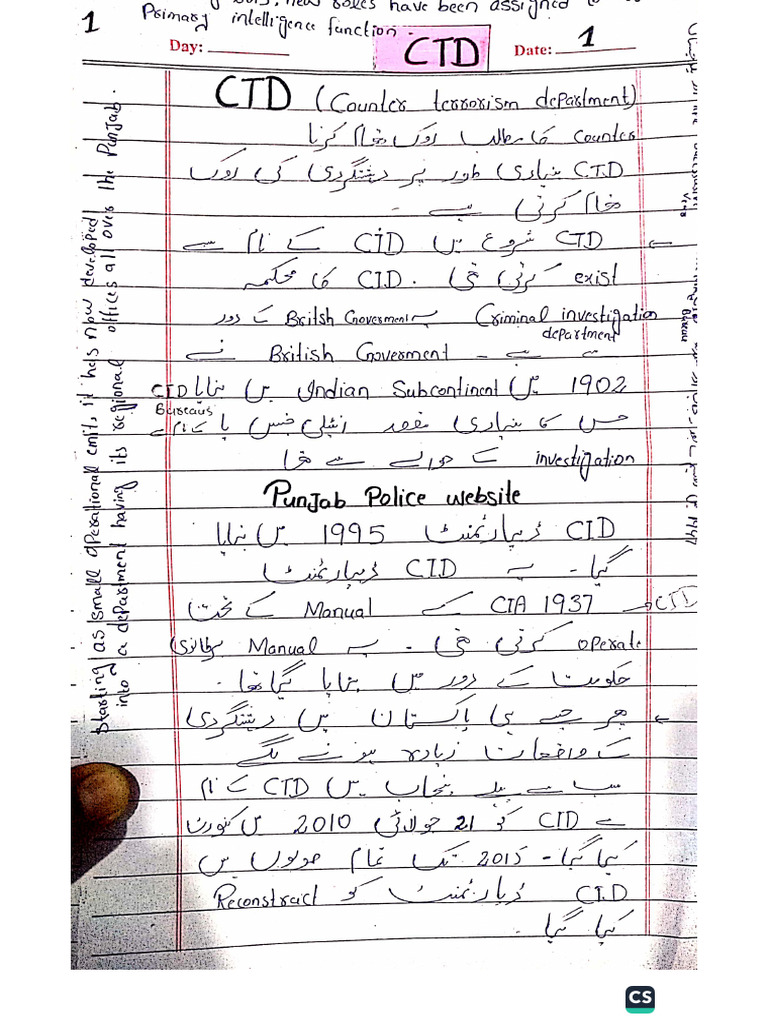 new roles have been assigned to
Primary intelligence function.
1
Day:
CTD
Date: 1
CTD (Counter terrorism department)
Counter کا مطلب روک تھام کرنا
CTD بنیادی طور پر دہشتگردی کی روک
تھام کرتی ہے -
CTD شروع میں CID کے نام سے
exist کرتی تھی . CID کا محکمہ
Criminal investigation department یہ British Goverment کے دور
سے ہے - British Goverment نے
1902 میں Indian Subcontinent میں بنایا CID
جس کا بنیادی مقصد انٹیلی جنس یا Bureaus کے نام سے
investigation کے حوالے سے تھا
Punjab Police website
CID ڈیپارٹمنٹ 1995 میں بنایا
گیا - یہ CID ڈیپارٹمنٹ
CTD CIA 1937 کے Manual کے تحت
operate کرتی تھی - یہ Manual برطانوی
حکومت کے دور میں بنایا گیا تھا .
پھر جیسے ہی پاکستان میں دہشتگردی
کے واقعات زیادہ ہونے لگے
سب سے پہلے پنجاب میں CTD کے نام
سے CID کو 21 جولائی 2010 میں کنورٹ
کیا گیا - 2015 تک تمام صوبوں میں
CTD ڈیپارٹمنٹ کو Reconstract
کیا گیا .
Starting as small operational emit, it has now developed
into a department having its regional offices all over the Punjab.
CS